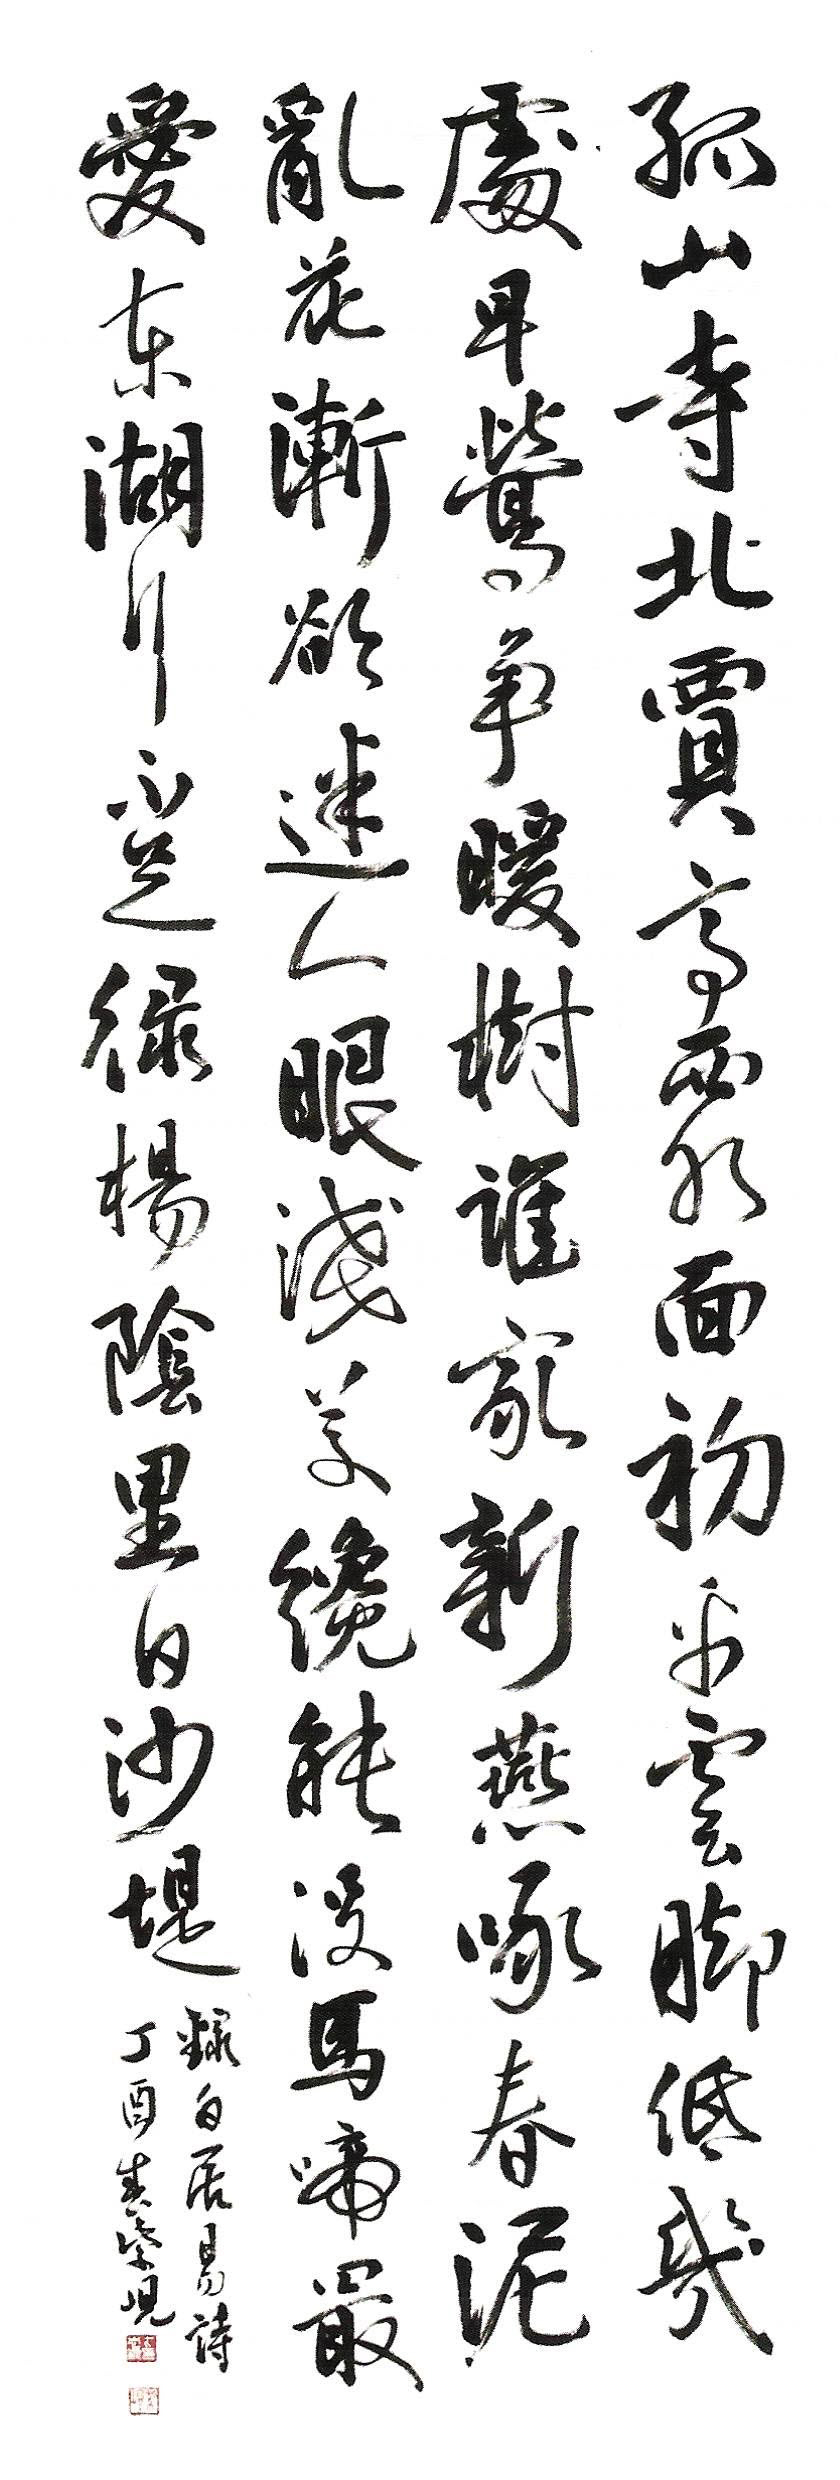 孤山寺北賈亭西水面初平雲脚低幾
處早鶯争暖樹誰家新燕啄春泥
亂花漸欲迷人眼淺草纔能没馬啼最
愛東湖行不足綠楊陰里白沙堤
錄白居易詩
丁酉春